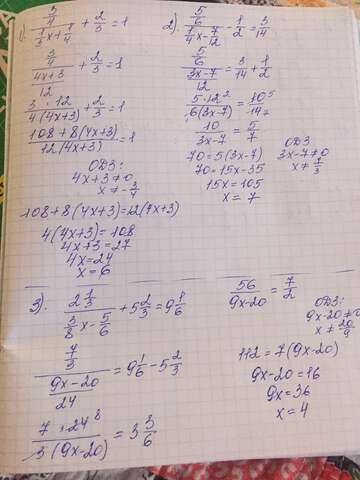 1) (3/4)/(1/3 x + 1/4) + 2/3 = 1
(3/4)/((4x+3)/12) + 2/3 = 1
3·12/4(4x+3) + 2/3 = 1
108+8(4x+3)/12(4x+3) = 1
ОДЗ:
4x+3≠0
x≠-3/4
108+8(4x+3)=12(4x+3)
4(4x+3)=108
4x+3=27
4x=24
x=6
2) (5/6)/(1/4 x - 7/12) - 1/2 = 3/14
(5/6)/((3x-7)/12) = 3/14 + 1/2
5·12²/6(3x-7) = 10⁵/14₇
10/3x-7 = 5/7
70=5(3x-7)
70=15x-35
15x=105
x=7
ОДЗ
3x-7≠0
x≠7/3
3). (2 1/3)/(3/8 x - 5/6) + 5 2/3 = 9 1/6
(7/3)/((9x-20)/24) = 9 1/6 - 5 2/3
7·24⁸/3(9x-20) = 3 3/6
56/9x-20 = 7/2
ОДЗ:
9x-20≠0
x≠20/9
112=7(9x-20)
9x-20=16
9x=36
x=4